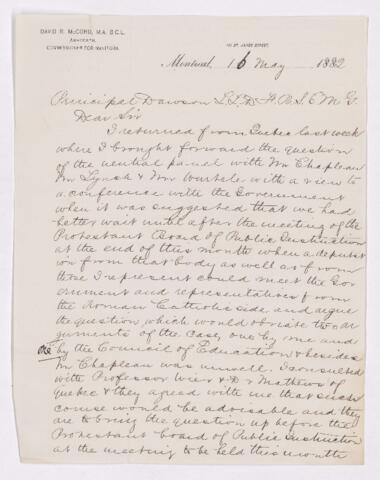 DAVID R. McCORD, M.A. B.C.L.
ADVOCATE.
COMMISSIONER FOR MANITOBA.
ST JAMES STREET,
Montreal, 16 May 1882
Principal Dawson L.L.D. F.R.S. C M G.
Dear Sir
I returned from Quebec last week
where I brought forward the question
of the neutral panel with Mr Chapleau
Mr Lynch & Mr Wurtele with a view to
a conference with the Government
when it was suggested that we had
better wait until after the meeting of the
Protestant Board of Public Instruction
at the end of this month when a deputat
ion from that body as well as from
those I represent could meet the Gov
ernment and representatives from
the Roman Catholic side and argue
the question, which would obviate two ar
guments of the case, one by me and
one by the Council of Education & besides
Mr Chapleau was unwell. I consulted
with Professor Weir & Dr Mathews of
Quebec & they agreed with me that such
course would be advisable and they
are to bring the question up before the
Protestant board of Public Instruction
at the meeting to be held this month